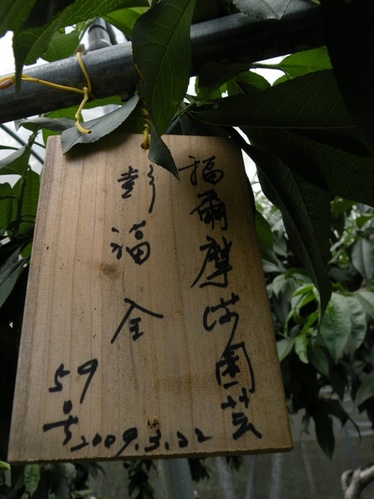 福爾摩沙園芸
彭福全
59号
2009.3.22